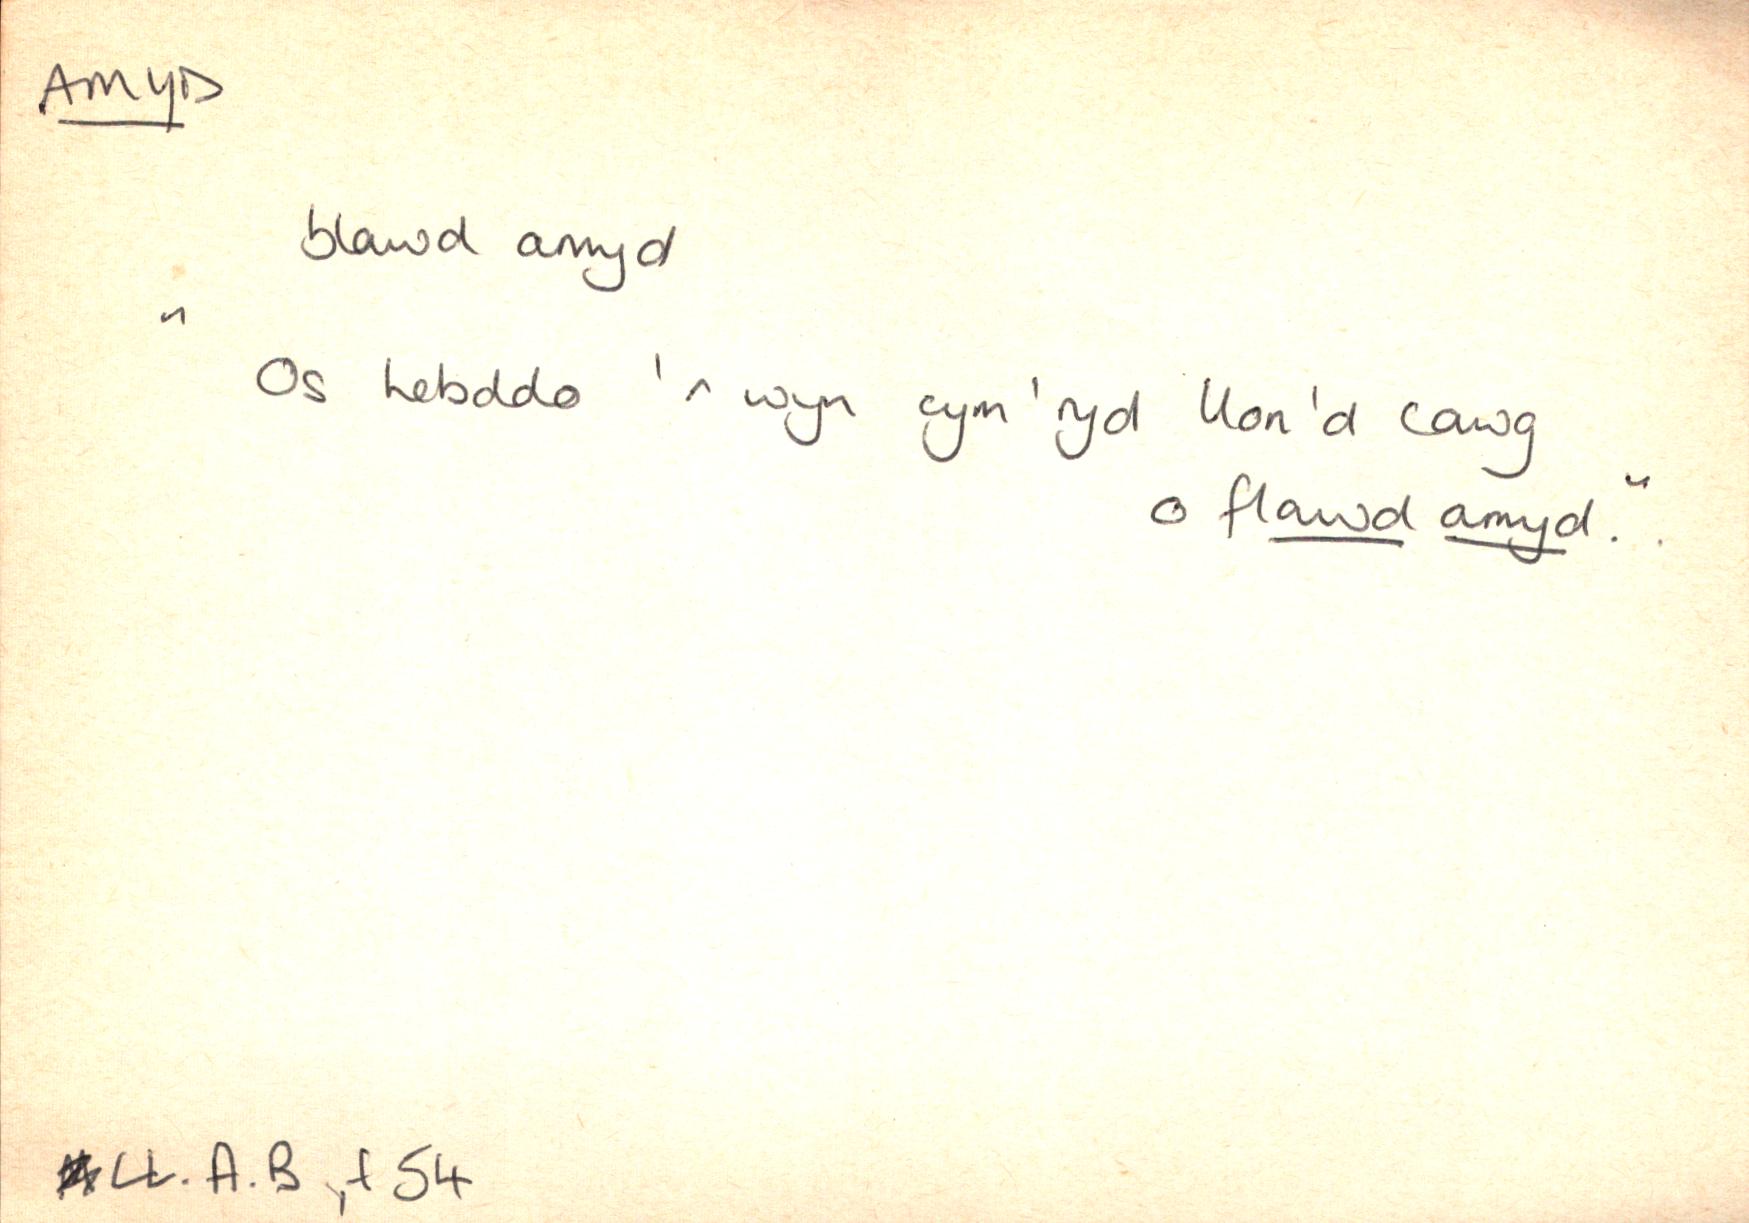 AMYD
blawd amyd
"
Os hebddo 'r wyn cym'ryd llon'd cawg
o flawd amyd.".
LL. A. B, t 54